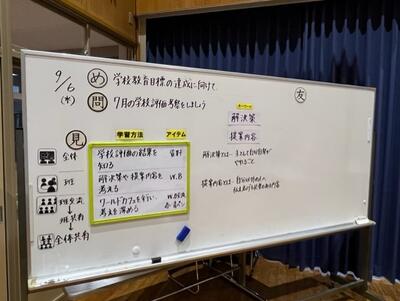 9/6
(水)
め 学校教育目標の達成に向けて
問 7月の学校評価を考察をしましょう
友
キーワード
解決策
提案内容
見
学習方法 アイテム
全体 学校評価の結果を知る 資料
班 解決策や提案内容を考える W.B
班交流 ワールドカフェを行い、考えを深める
班共有
全体共有
解決策とは…
提案内容とは…